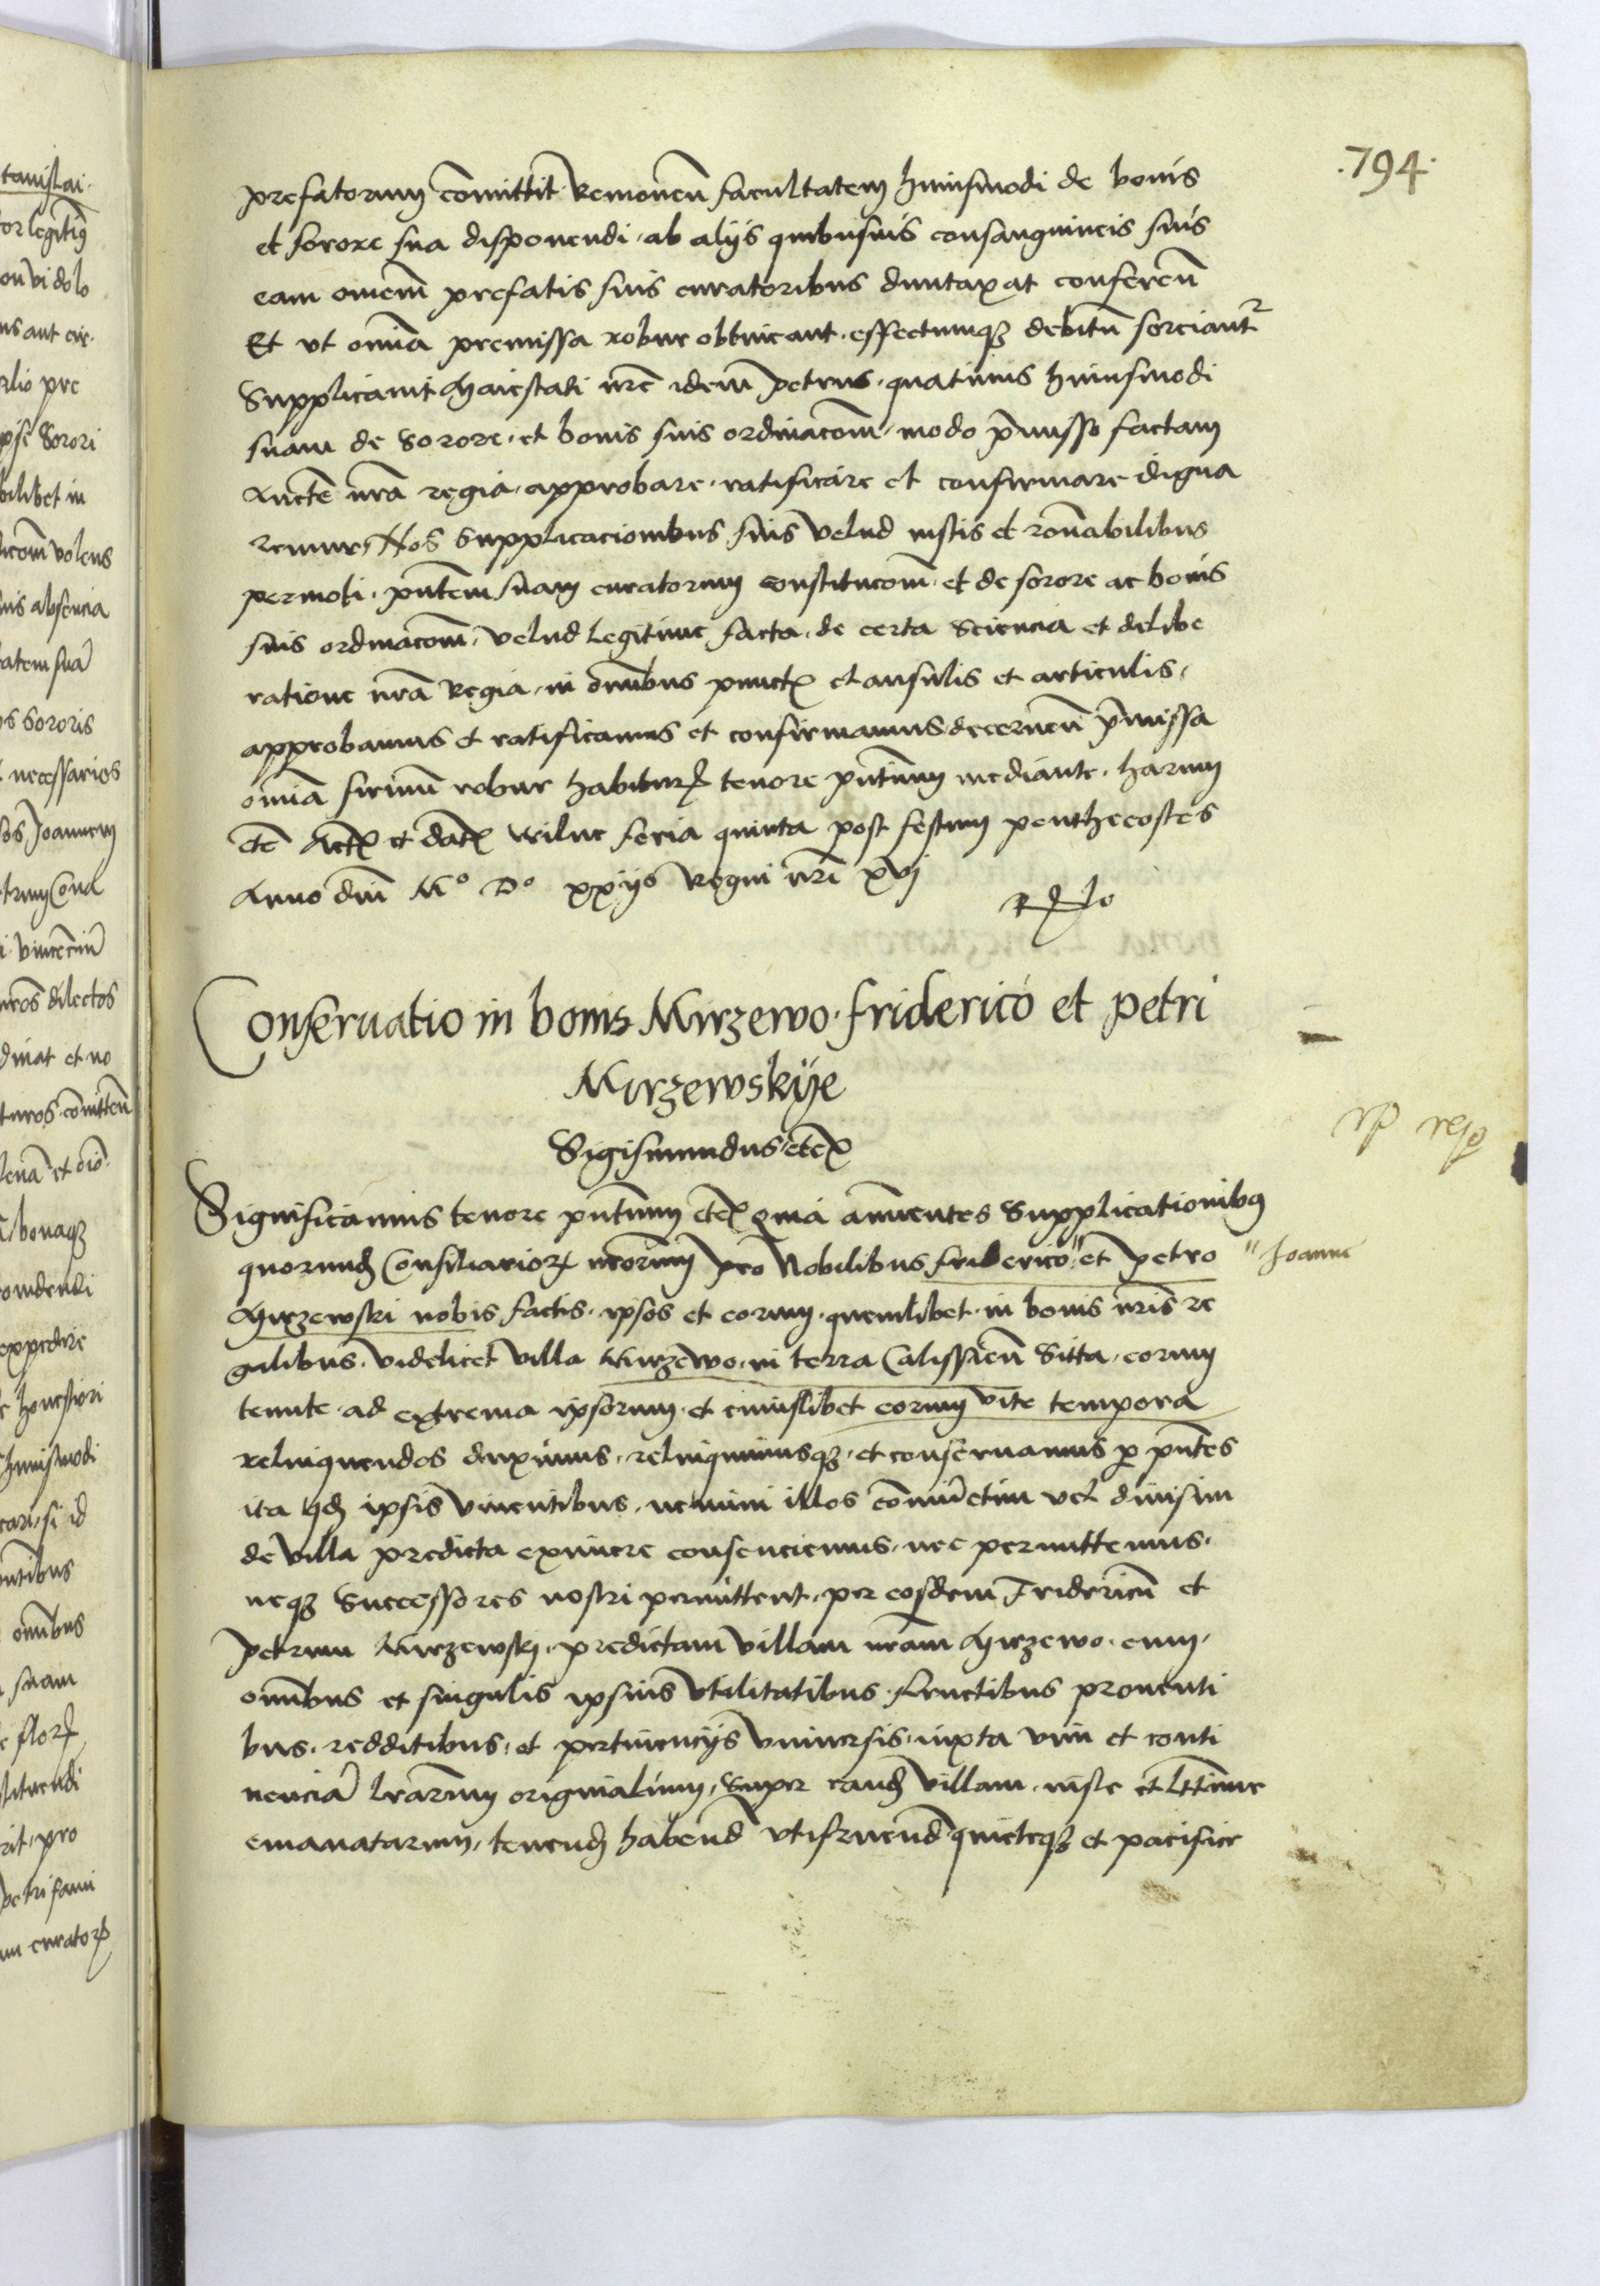 .794.
prefatorum com̄ittit Removeñ facultatem huiusmodi de bonis
et sorore sua disponendi ab alijs quibusuis consanguineis suis
eam om̄em̄ prefatis suis curatoribus duntaxat confereñ
Et vt om̄ia premissa robur obtineant effectumqꝫ debitū sorciant᷑
Supplicauit Maiestati nr̄e idem Petrus quatinus huiusmodi
suam de Sorore et bonis suis ordinacōm̄ modo p̄misso factam
Auctē nr̄a regia approbare ratificare et confirmare digna
remur Nos Supplicacionibus suis velud iustis et rōnabilibus
permoti pn̄tem suam curatorum constitucōm̄ et de sorore ac bonis
suis ordinacōm̄ velud legitime facta de certa Sciencia et delibe
ratione nr̄a Regia in om̄ibus punctꝭ clausulis et articulis
approbamus et ratificamus et confirmamus decerneñ p̄missa
om̄ia firmū robur habiturꝭ tenore pn̄tium mediante harum
etc̄ Actꝭ et datꝭ Wilne feria quinta post festum penthecostes
Anno dn̄i Mº Dº xxijº Regni nr̄i xvj
Conseruatio in bonis Mirzewo friderico et Petri
Mirzewskÿe
Sigismundus etcꝭ
Significamus tenore pn̄tium etcꝭ quia annuentes Supplicationibꝰ
quorundꝭ Consiliariorꝝ nr̄orum pro Nobilibus friderico " et Petro " Joanne
Mirzewski nobis factis ipsos et eorum quemlibet in bonis nr̄is re
galibus videlicet villa Mirzewo in terra Calissieñ Sitta eorum
tenute ad extrema ipsorum et cuiuslibet eorum vite tempora
relinquendos duximus relinquimusqꝫ et conseruamus ꝑ pn̄tes
ita qꝺ ipsis viuentibus nemini illos com̄ūctim vel diuisim
de villa predicta eximere consenciemus nec permittemus
neqꝫ Successores nostri permittent per eosdem Fridericū et
Petrum Mirzewski predictam villam nr̄am Mirzewo cum
om̄ibus et singulis ipsius vtilitatibus fructibus prouenti
bus redditibus et pertinencijs vniuersis iuxta vim et conti
nenciā lr̄arum originalium Super eandꝭ villam iuste et lt̄time
emanatarum tenendꝭ habend̄ vtifruend̄ quieteqꝫ et pacifice